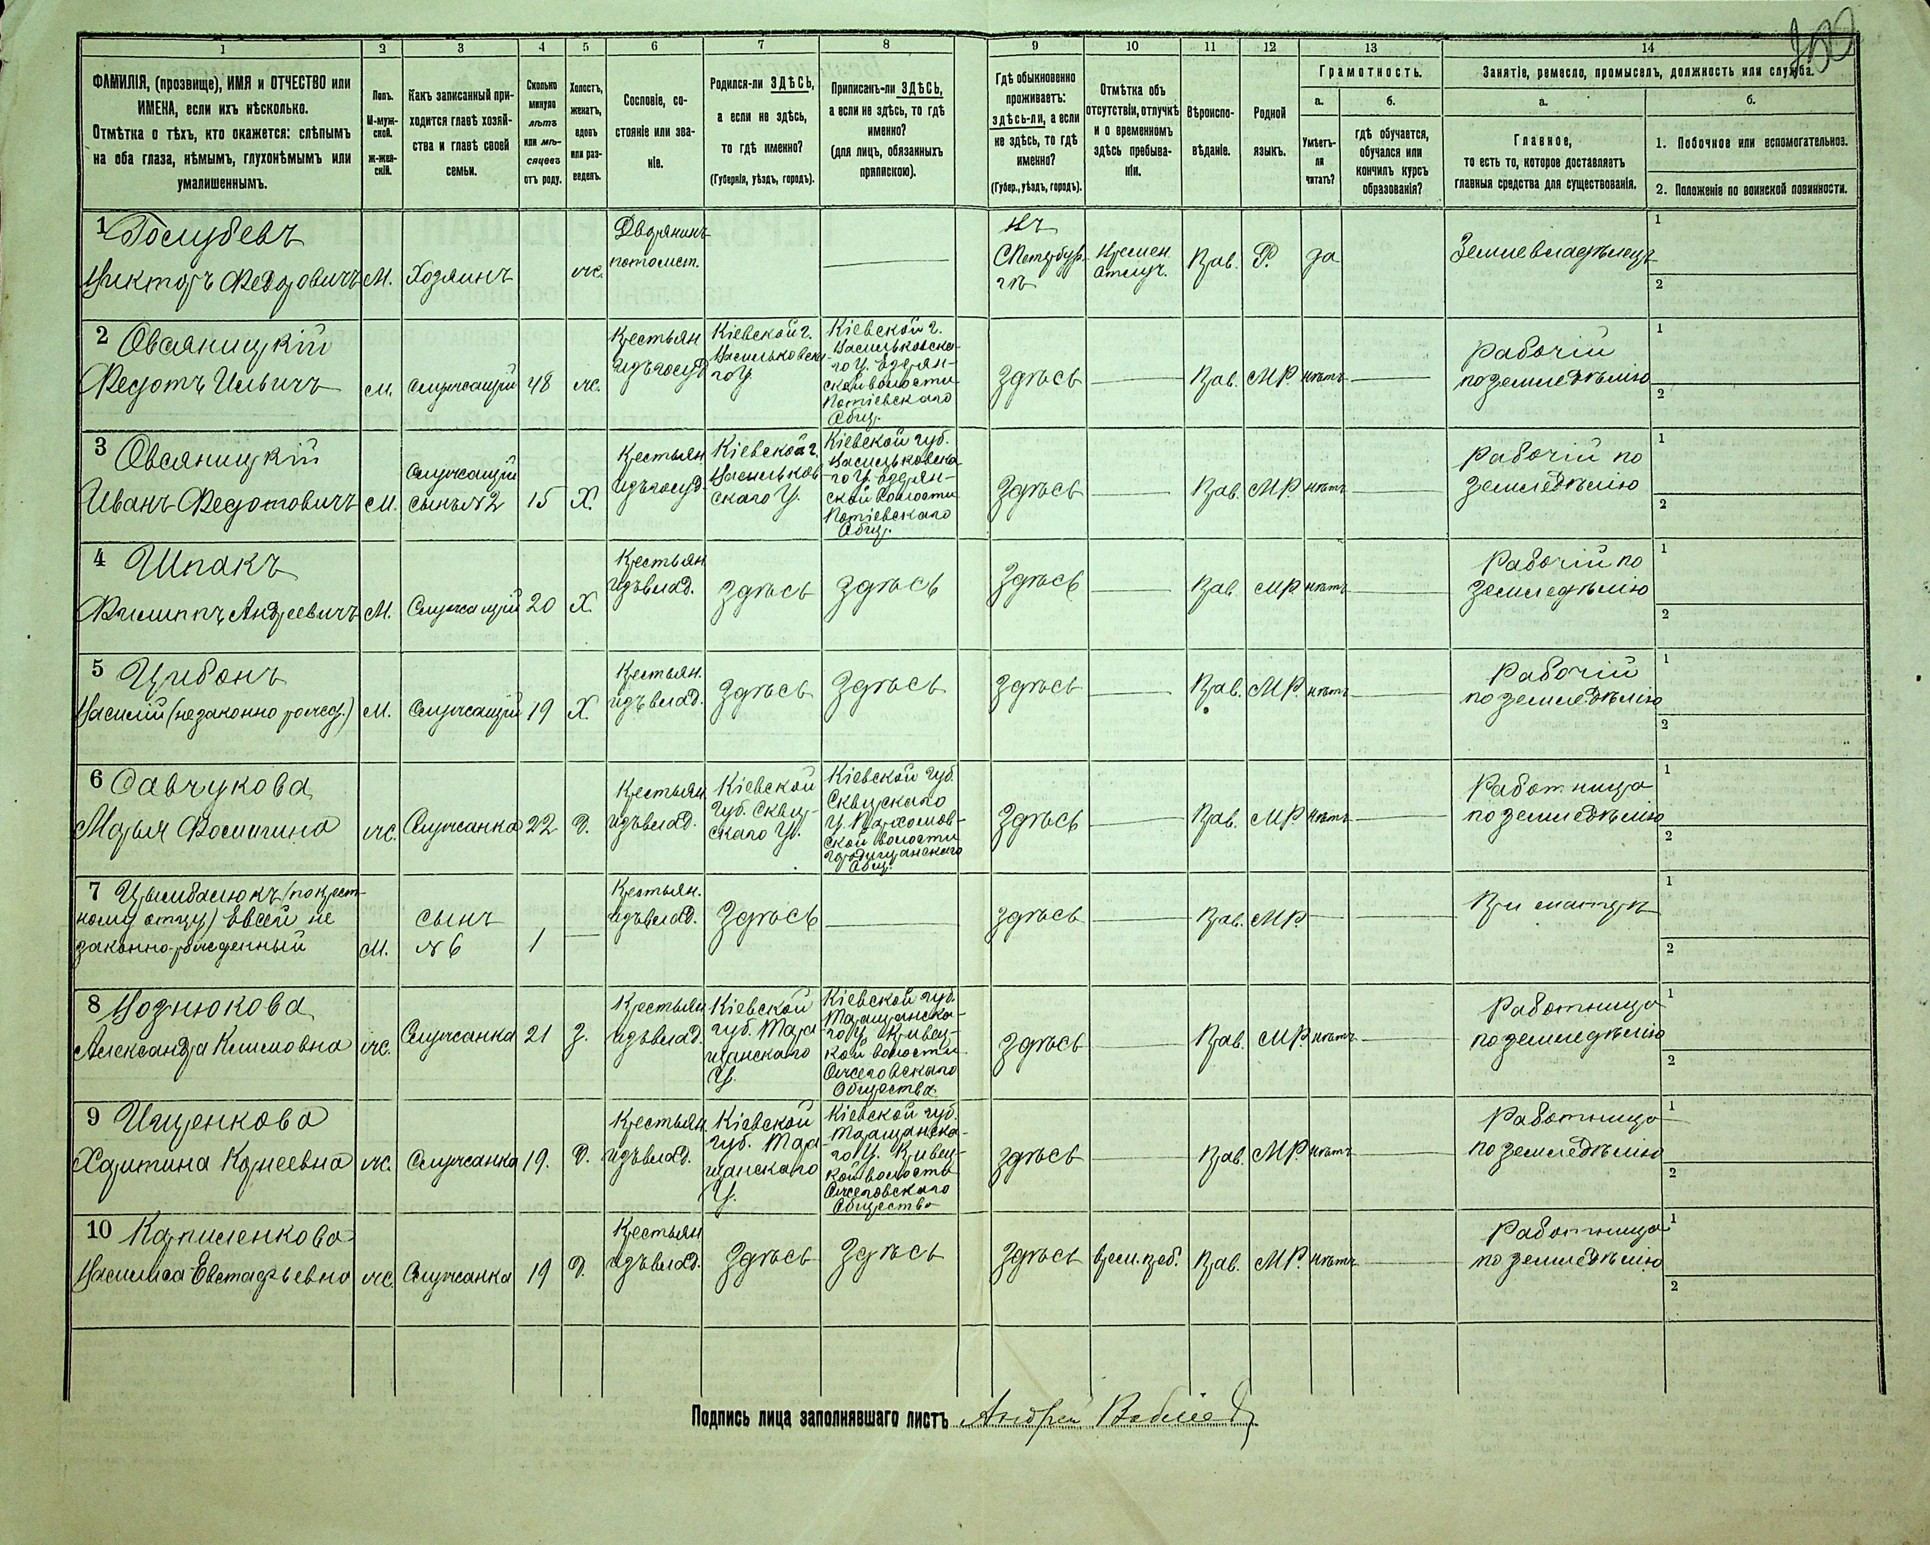 1 2 3 4 5 6 7 8 9 10 11 12 13 14
ФАМИЛІЯ, (прозвище), ИМЯ и ОТЧЕСТВО или
ИМЕНА, если ихъ нѣсколько.
Отмѣтка о тѣхъ, кто окажется: слѣпымъ
на оба глаза, нѣмымъ, глухонѣмымъ или
умалишеннымъ.
Полъ.
М-муж-
ской.
ж-жен-
скій.
Какъ записанный при-
ходится главѣ хозяй-
ства и главѣ своей
семьи.
Сколько
минуло
лѣтъ
или мѣ-
сяцевъ
отъ роду.
Холостъ,
женатъ,
вдовъ
или раз-
веденъ.
Сословіе, со-
стояніе или зва-
ніе.
Родился-ли ЗДѢСЬ,
а если не здѣсь,
то гдѣ именно?
(Губернія, уѣздъ, городъ).
Приписанъ-ли ЗДѢСЬ,
а если не здѣсь, то гдѣ
именно?
(для лицъ, обязанныхъ
припискою).
Гдѣ обыкновенно
проживаетъ:
здѣсь-ли, а если
не здѣсь, то гдѣ
именно?
(Губер., уѣздъ, городъ).
Отмѣтка объ
отсутствіи, отлучкѣ
и о временномъ
здѣсь пребыва-
ніи.
Вѣроиспо-
вѣданіе.
Родной
языкъ.
Грамотность.
а.
Умѣетъ-
ли
читать?
б.
гдѣ обучается,
обучался или
кончилъ курсъ
образованія?
Занятіе, ремесло, промыселъ, должность или служба.
а.
Главное,
то есть то, которое доставляетъ
главныя средства для существованія.
б.
1. Побочное или вспомогательное.
2. Положеніе по воинской повинности.
1 Голубевъ
Викторъ Федоровичъ
М.
Хозяинъ
жс.
Дворянинъ
потомст.
Въ
СПетербур-
гѣ
Времен.
отлуч.
Прав.
Р.
да
Землевладѣлецъ
1
2
2 Овсяницкій
Федотъ Ильичъ
М.
Служащій
48
ж.
Крестьян
издъгосуд
Кіевской г.
Васильковска-
го У.
Кіевской г.
Васильковска-
го У. Озерян-
ской волости
Потіевскаго
Общ.
Здѣсь
Прав.
МР.
нѣтъ
Рабочій
по земледѣлію
1
2
3 Овсяницкій
Иванъ Федотовичъ
М.
Служащій
сынъ №2
15
Х.
Крестьян.
издъгосуд.
Кіевской г.
Васильков-
скаго У.
Кіевской губ.
Васильковска-
го У. Озерян-
ской волости
Потіевскаго
Общ.
Здѣсь
Прав.
МР.
нѣтъ
Рабочій по
земледѣлію
1
2
4 Шпакъ
Филиппъ Андреевичъ
М.
Служащій
20
Х.
Крестьян
издъвлад.
Здѣсь
Здѣсь
Здѣсь
Прав.
МР.
нѣтъ
Рабочій по
земледѣлію
1
2
5 Цибонъ
Василій (незаконно рожед.)
М.
Служащій
19
Х.
Крестьян.
издъвлад.
Здѣсь
Здѣсь
Здѣсь
Прав.
МР.
нѣтъ
Рабочій
по земледѣлію
1
2
6 Савчукова
Марья Фомишна
ж.
Служанка
22
Д.
Крестьян
издъвлад.
Кіевской
губ. Сквир-
скаго У.
Кіевской губ.
Сквирскаго
У. Пархомов-
ской волости
Городищанскаго
Общ.
Здѣсь
Прав.
МР.
нѣтъ
Работница
по земледѣлію
1
2
7 Цымбалюкъ (по крест-
ному отцу) Евсей не
законно-рожденный
М.
сынъ
№ 6
1
Крестьян.
издъвлад.
Здѣсь
здѣсь
Прав.
МР.
При матери
1
2
8 Вознюкова
Александра Климовна
ж.
Служанка
21
З.
Крестьян
издъвлад.
Кіевской
губ. Тара
щанскаго
У.
Кіевской губ.
Таращанска-
го У. Кривец-
кой волости
Ожеговскаго
Общества
здѣсь
Прав.
МР.
нѣтъ
Работница
по земледѣлію
1
2
9 Ищенкова
Харитина Корнеевна
ж.
Служанка
19.
Д.
Крестьян
издъвлад.
Кіевской
губ. Тара-
щанскаго
У.
Кіевской губ.
Таращанска-
го У. Кривец-
кой волости
Ожеговскаго
Общества
здѣсь
Прав.
МР.
нѣтъ
Работница
по земледѣлію
1
2
10 Карпиленкова
Василиса Евстафьевна
ж.
Служанка
19
Д.
Крестьян
издъвлад.
Здѣсь
Здѣсь
Здѣсь
врем. преб.
Прав.
МР.
нѣтъ
Работница
по земледѣлію
1
2
Подпись лица заполнявшаго листъ Андрей